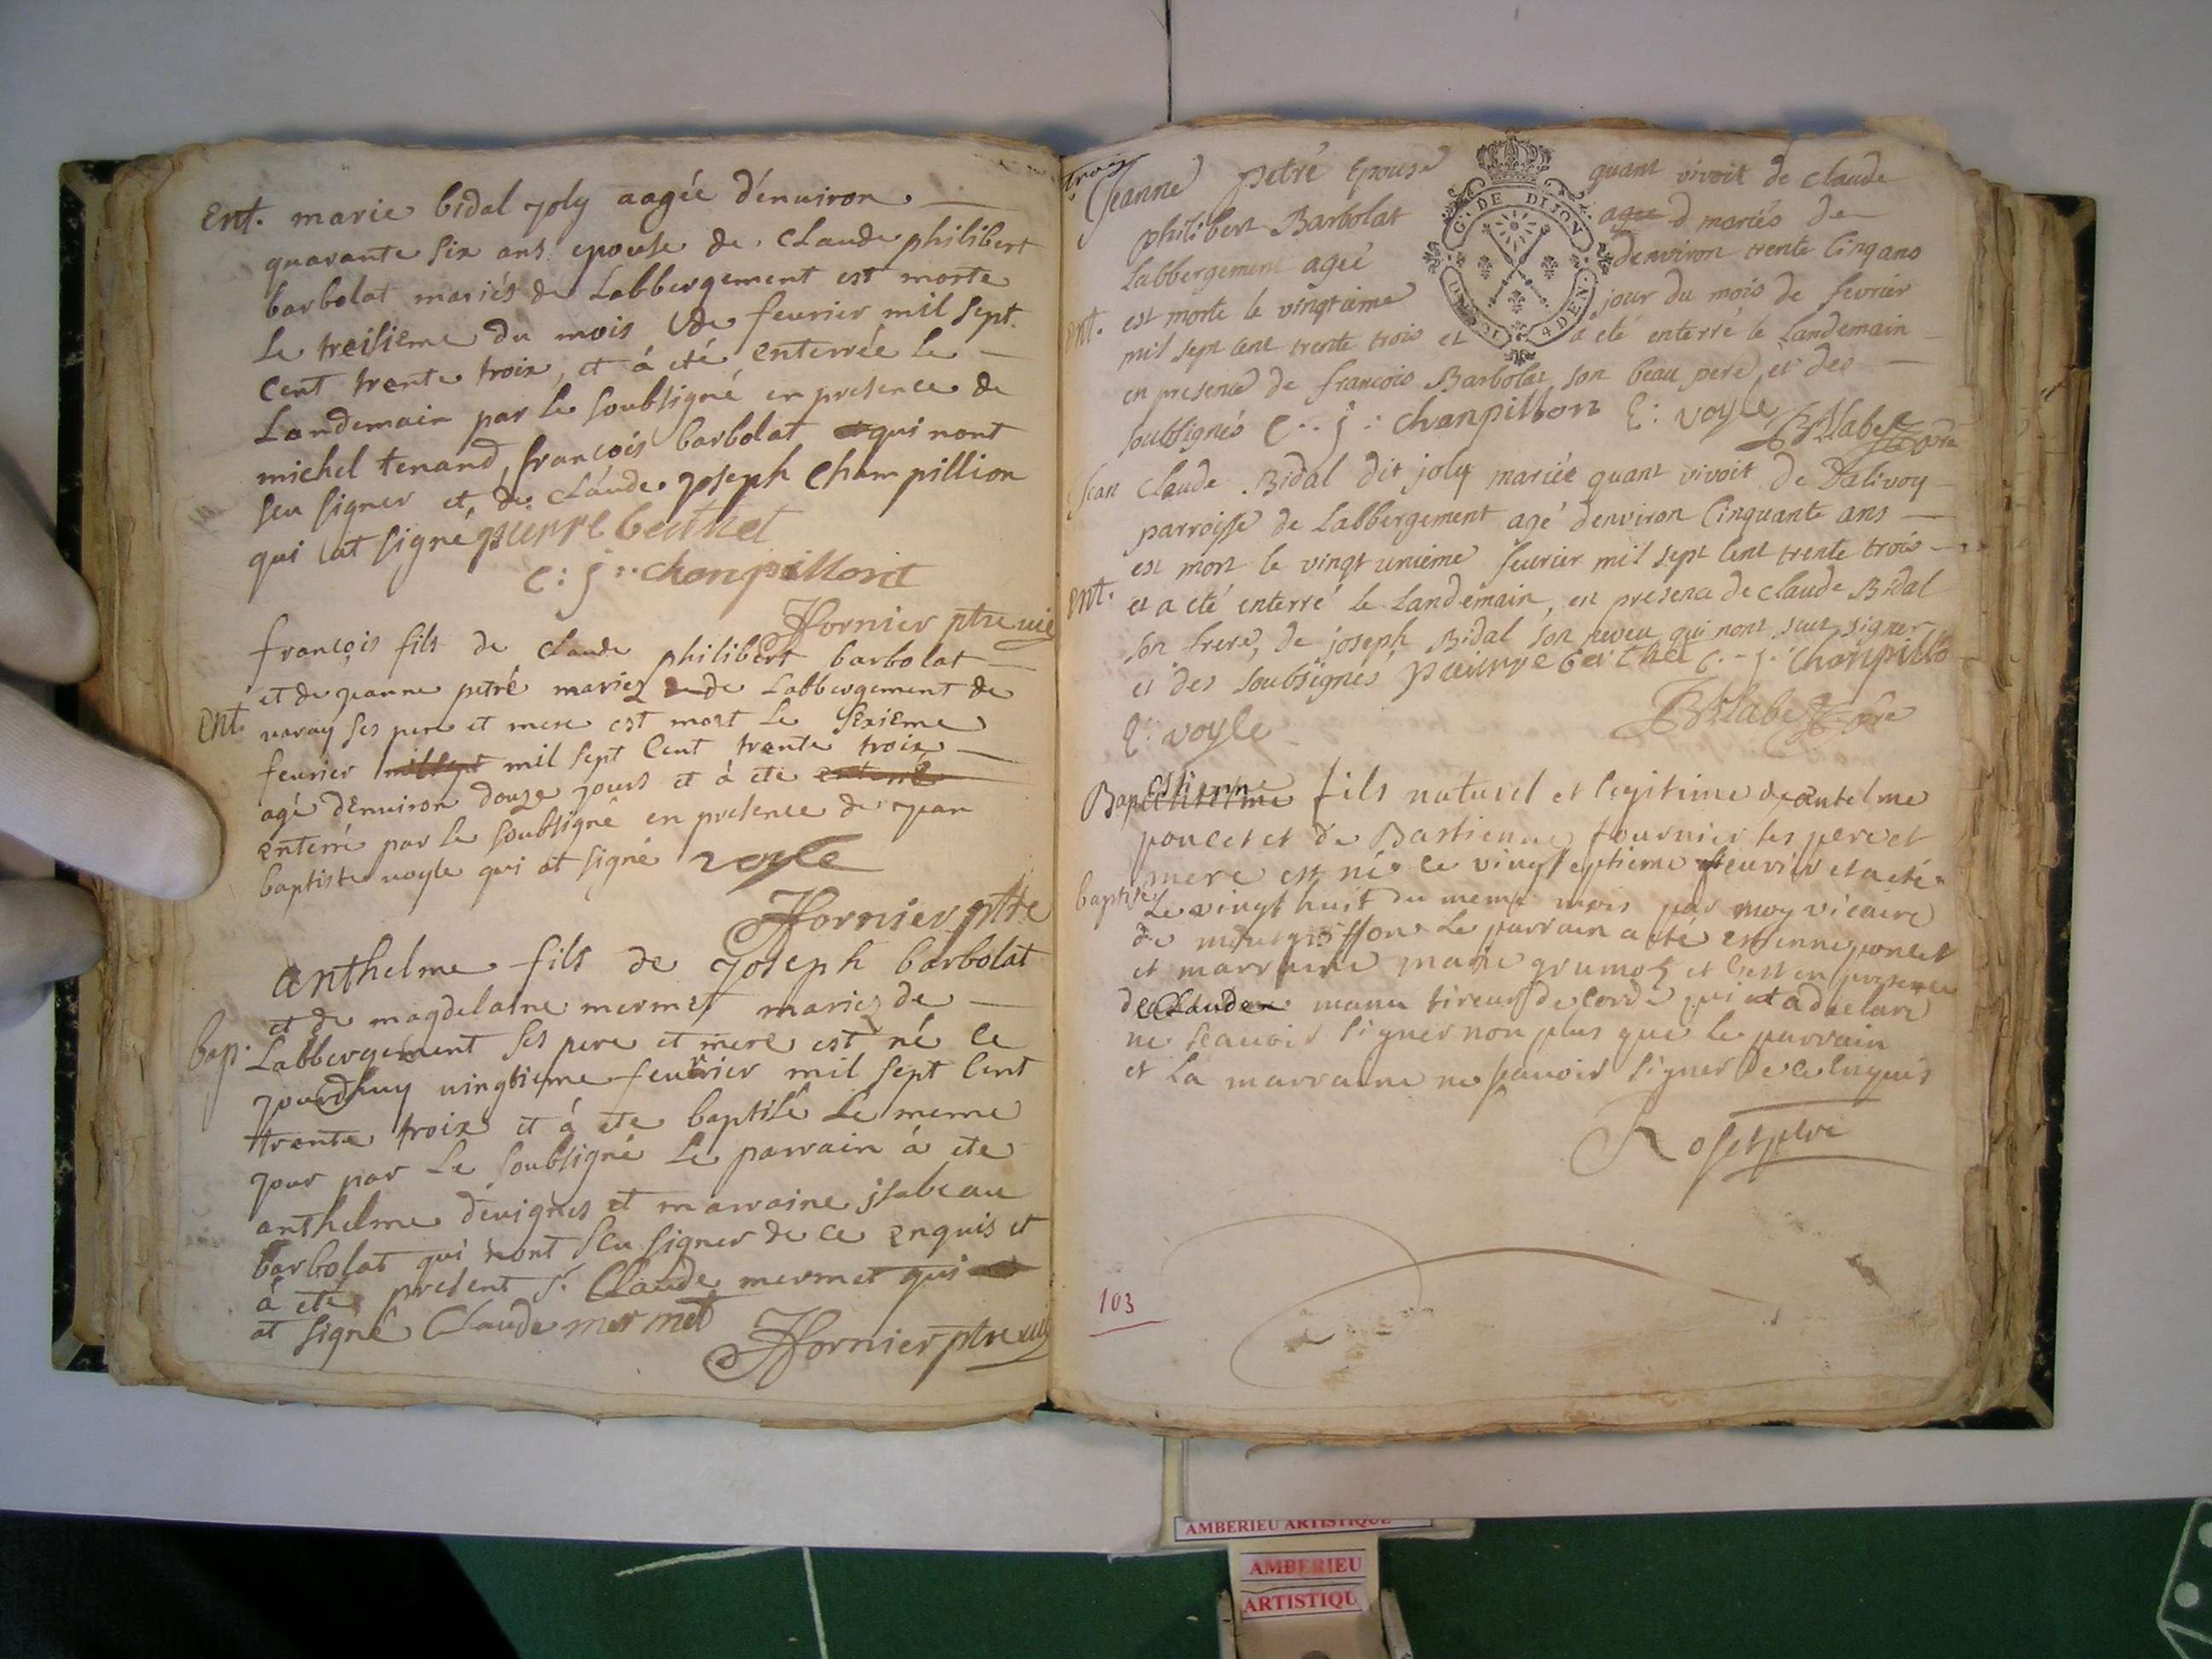 Ent. marie bidal joly aagée d'enuiron
quarante six ans epouse de Claude philibert
barbolat mariés de Labbergement est morte
le treisieme du mois de feurier mil sept
cent trente troix, et á eté enterrée le
Landemain par le soubsigné en presence de
michel tenand, françois barbolat qui nont
seu signer et de Claude joseph Champillion
qui at signé pierre berthet
C: j: chanpillont
Hornier ptre
françois fils de Claude philibert barbolat
et de jeanne petré mariez de Labbergement de
Ent. varay ses pere et mere est mort le sexieme
feurier mil sept Cent trente troix
agé d'enuiron douze jours et à eté
enterré par le soubsigné en presence de jean
baptiste voyle qui at signé voyle
Hornier ptre
anthelme fils de Joseph barbolat
et de magdelaine mermet mariez de
bap. Labbergement ses pere et mere est né ce
jourdhuy uingtieme feurier mil sept Cent
trente troix et á ete baptisé le meme
jour par le soubsigné le parrain á ete
anthelme deuignes et marraine jsabeau
barbolat qui nont seu signer de ce enquis et
á eté present s.r Claude mermet qui
at signé Claude mermet
Hornier ptre
trois
Jeanne petré Epouse quant vivoit de Claude
philibert Barbolat mariés de
Labbergement ageé denviron trente Cinq ans
ent. est morte le vingtieme jour du mois de fevrier
mil sept Cent trente trois et a eté enterré le Landemain
en presence de francois Barbolat son beau pere et des
soubsignés C: j: chanpillon voyle
ptre
Jean Claude Bidal dit joly mariée quant vivoit de Dalivoy
parroisse de Labbergement agé denviron Cinquante ans
est mort le vingt unieme feurier mil sept Cent trente trois
ent. et a eté enterré le Landemain, en presence de Claude Bidal
son frere, de joseph Bidal son neveu qui nont sceu signer
et des soubsignés pierre berthet C: j: chanpillo
voyle
Bap Estienne fils naturel et legitime de antelme
poncet et de Bastienne fournier ses pere et
mere est né le vingt septieme feurier et a eté
baptisé Le vingt huit du meme mois par moy vicaire
de Le parrain a eté estienne poncet
et marraine marie grumoz et Cest en presence
de Claude manu tireur de corde qui a declaré
ne scauoir signer non plus que le parrain
et La marraine ne scauoir signer de Ce enquis
Roset ptre
103
G. DE DIJON
4 DEN.
AMBERIEU ARTISTIQUE
AMBERIEU
ARTISTIQU